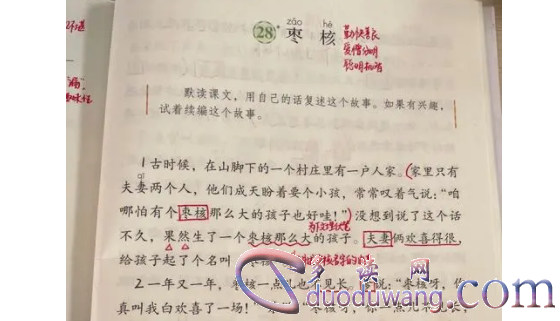 zǎo hé
28 枣 核
勤快善良
爱憎分明
聪明机智
默读课文，用自己的话复述这个故事。如果有兴趣，
试着续编这个故事。
1 古时候，在山脚下的一个村庄里有一户人家。（家里只有
qī
夫妻两个人，他们成天盼着要个小孩，常常叹着气说：“咱
哪怕有个枣核那么大的孩子也好哇！”）没想到说了这个话
不久，果然生了一个枣核那么大的孩子。夫妻俩欢喜得很，
给孩子起了个名叫
2 一年又一年，枣核一点儿也不见长。
真叫我白欢喜了一场！
多读网
duoduwang.com